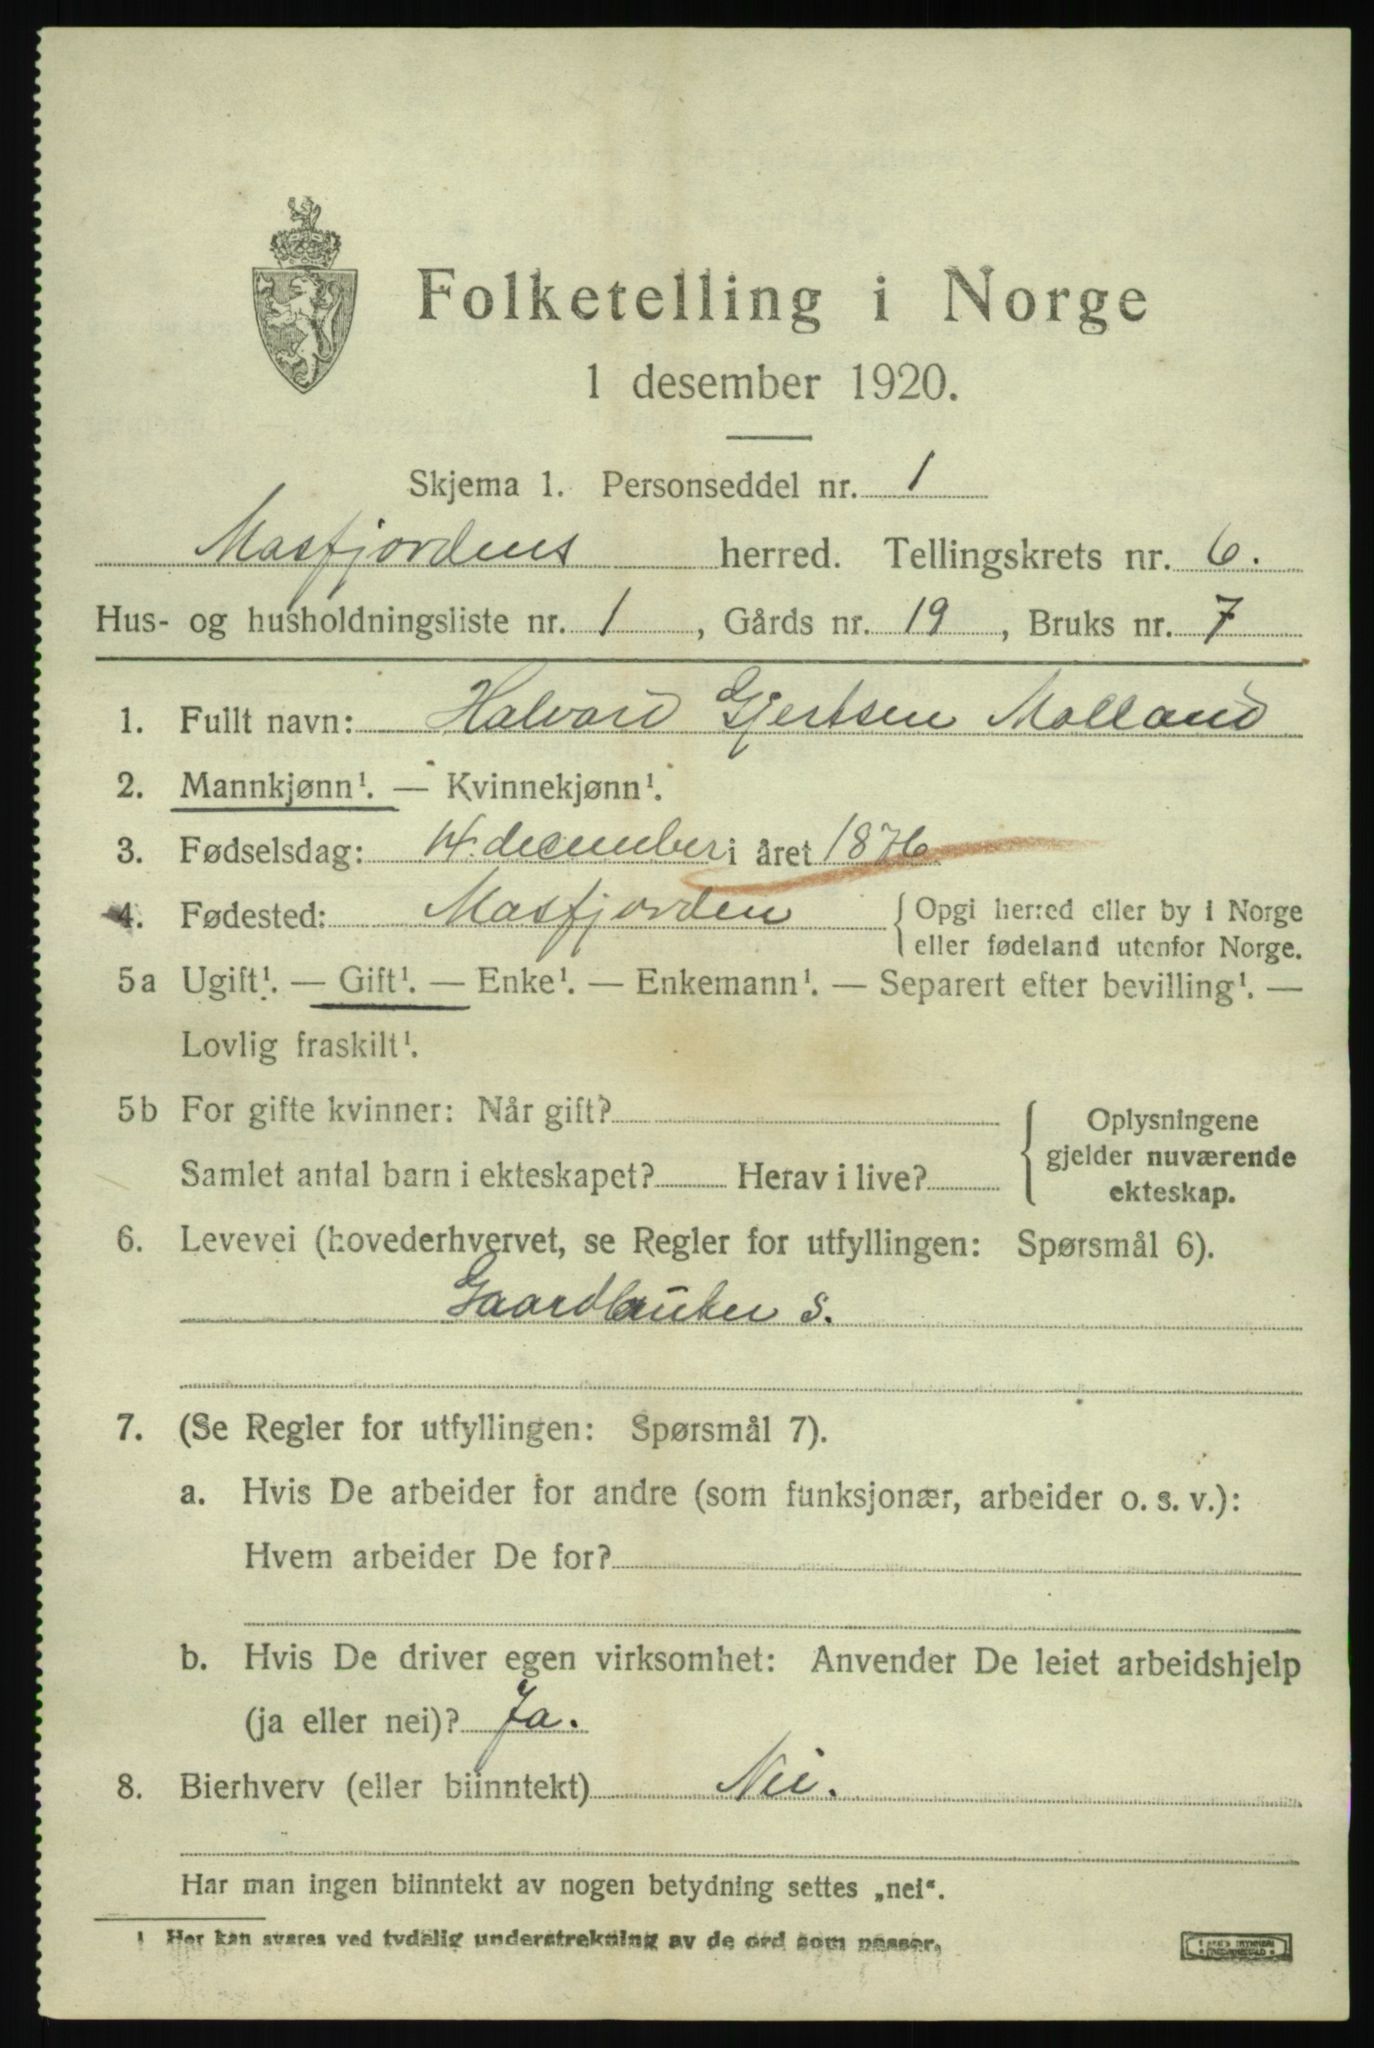 Folketelling i Norge
1 desember 1920.
Skjema 1. Personseddel nr. 1
Masfjordens herred. Tellingskrets nr. 6.
Hus- og husholdningsliste nr. 1, Gårds nr. 19, Bruks nr. 7
1. Fullt navn: Halvard Gjertsen Molland
2. Mannkjønn¹. — Kvinnekjønn¹.
3. Fødselsdag: 14. december i året 1876
4. Fødested: Masfjorden { Opgi herred eller by i Norge
eller fødeland utenfor Norge.
5a Ugift¹. — Gift¹. — Enke¹. — Enkemann¹. — Separert efter bevilling¹. —
Lovlig fraskilt¹.
5b For gifte kvinner: Når gift?
Samlet antal barn i ekteskapet? Herav i live?
{ Oplysningene
gjelder nuværende
ekteskap.
6. Levevei (hovederhvervet, se Regler for utfyllingen: Spørsmål 6).
Gaardbruker s.
7. (Se Regler for utfyllingen: Spørsmål 7).
a. Hvis De arbeider for andre (som funksjonær, arbeider o. s. v.):
Hvem arbeider De for?
b. Hvis De driver egen virksomhet: Anvender De leiet arbeidshjelp
(ja eller nei)? Ja.
8. Bierhverv (eller biinntekt) Nei.
Har man ingen biinntekt av nogen betydning settes „nei“.
1 Her kan svares ved tydelig understrekning av de ord som passer.